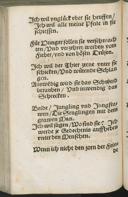 Ich wil unglück uber sie heuffen /
Ich wil alle meine Pfeile in sie
schiessen.
Für Hunger sollen sie verschmachten /
Und verzehret werden vom
Fieber / und von bösem
Ich wil der Thier zeene unter sie
schicken / Und wütende Schlangen.
Auswendig wird sie das Schwerd
berauben / Und inwendig das
Schrecken.
Beide / Jüngling und Jungfrawen /
Die Seuglingen mit dem
grawen Man.
Ich wil sagen / Wo sind sie? Ich
werde ir Gedechtnis auffheben
unter den Menschen.
Wenn ich nicht den zorn der Feinde